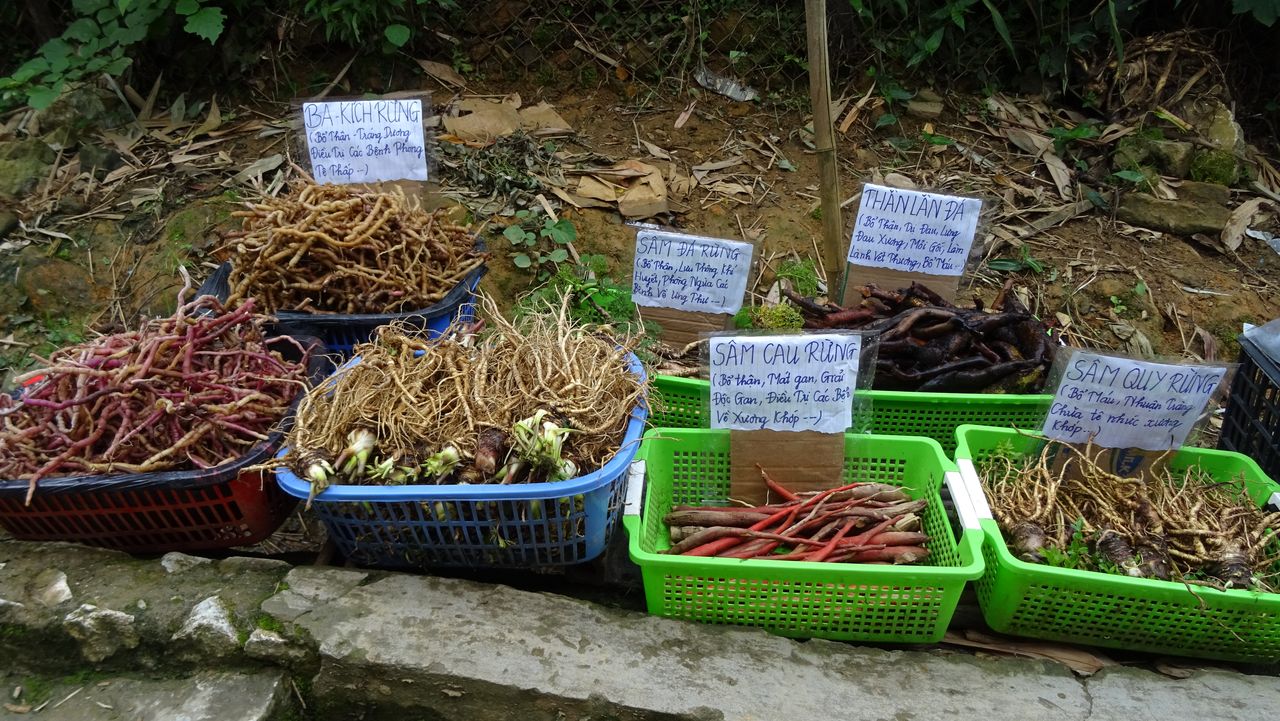 BA-KÍCH RỪNG
(Bổ Thận-Tráng Dương
Điều Trị Các Bệnh Phong
Tê Thấp --)
SÂM ĐÁ RỪNG
(Bổ Thận, Lưu Thông Khí
Huyết, Phòng Ngừa Các
Bệnh Về Ung Thư---)
THẰN LẰN ĐÁ
(Bổ Thận, Trị Đau Lưng
Đau Xương, Mỏi Gối, Làm
Lành Vết Thương, Bổ Máu
SÂM CAU RỪNG
(Bổ thận, Mát gan, Giải
Độc Gan, Điều Trị Các Bệnh
Về Xương Khớp ---)
SÂM QUY RỪNG
(Bổ Máu, Nhuận Tràng
Chữa tê nhức xương
Khớp...)